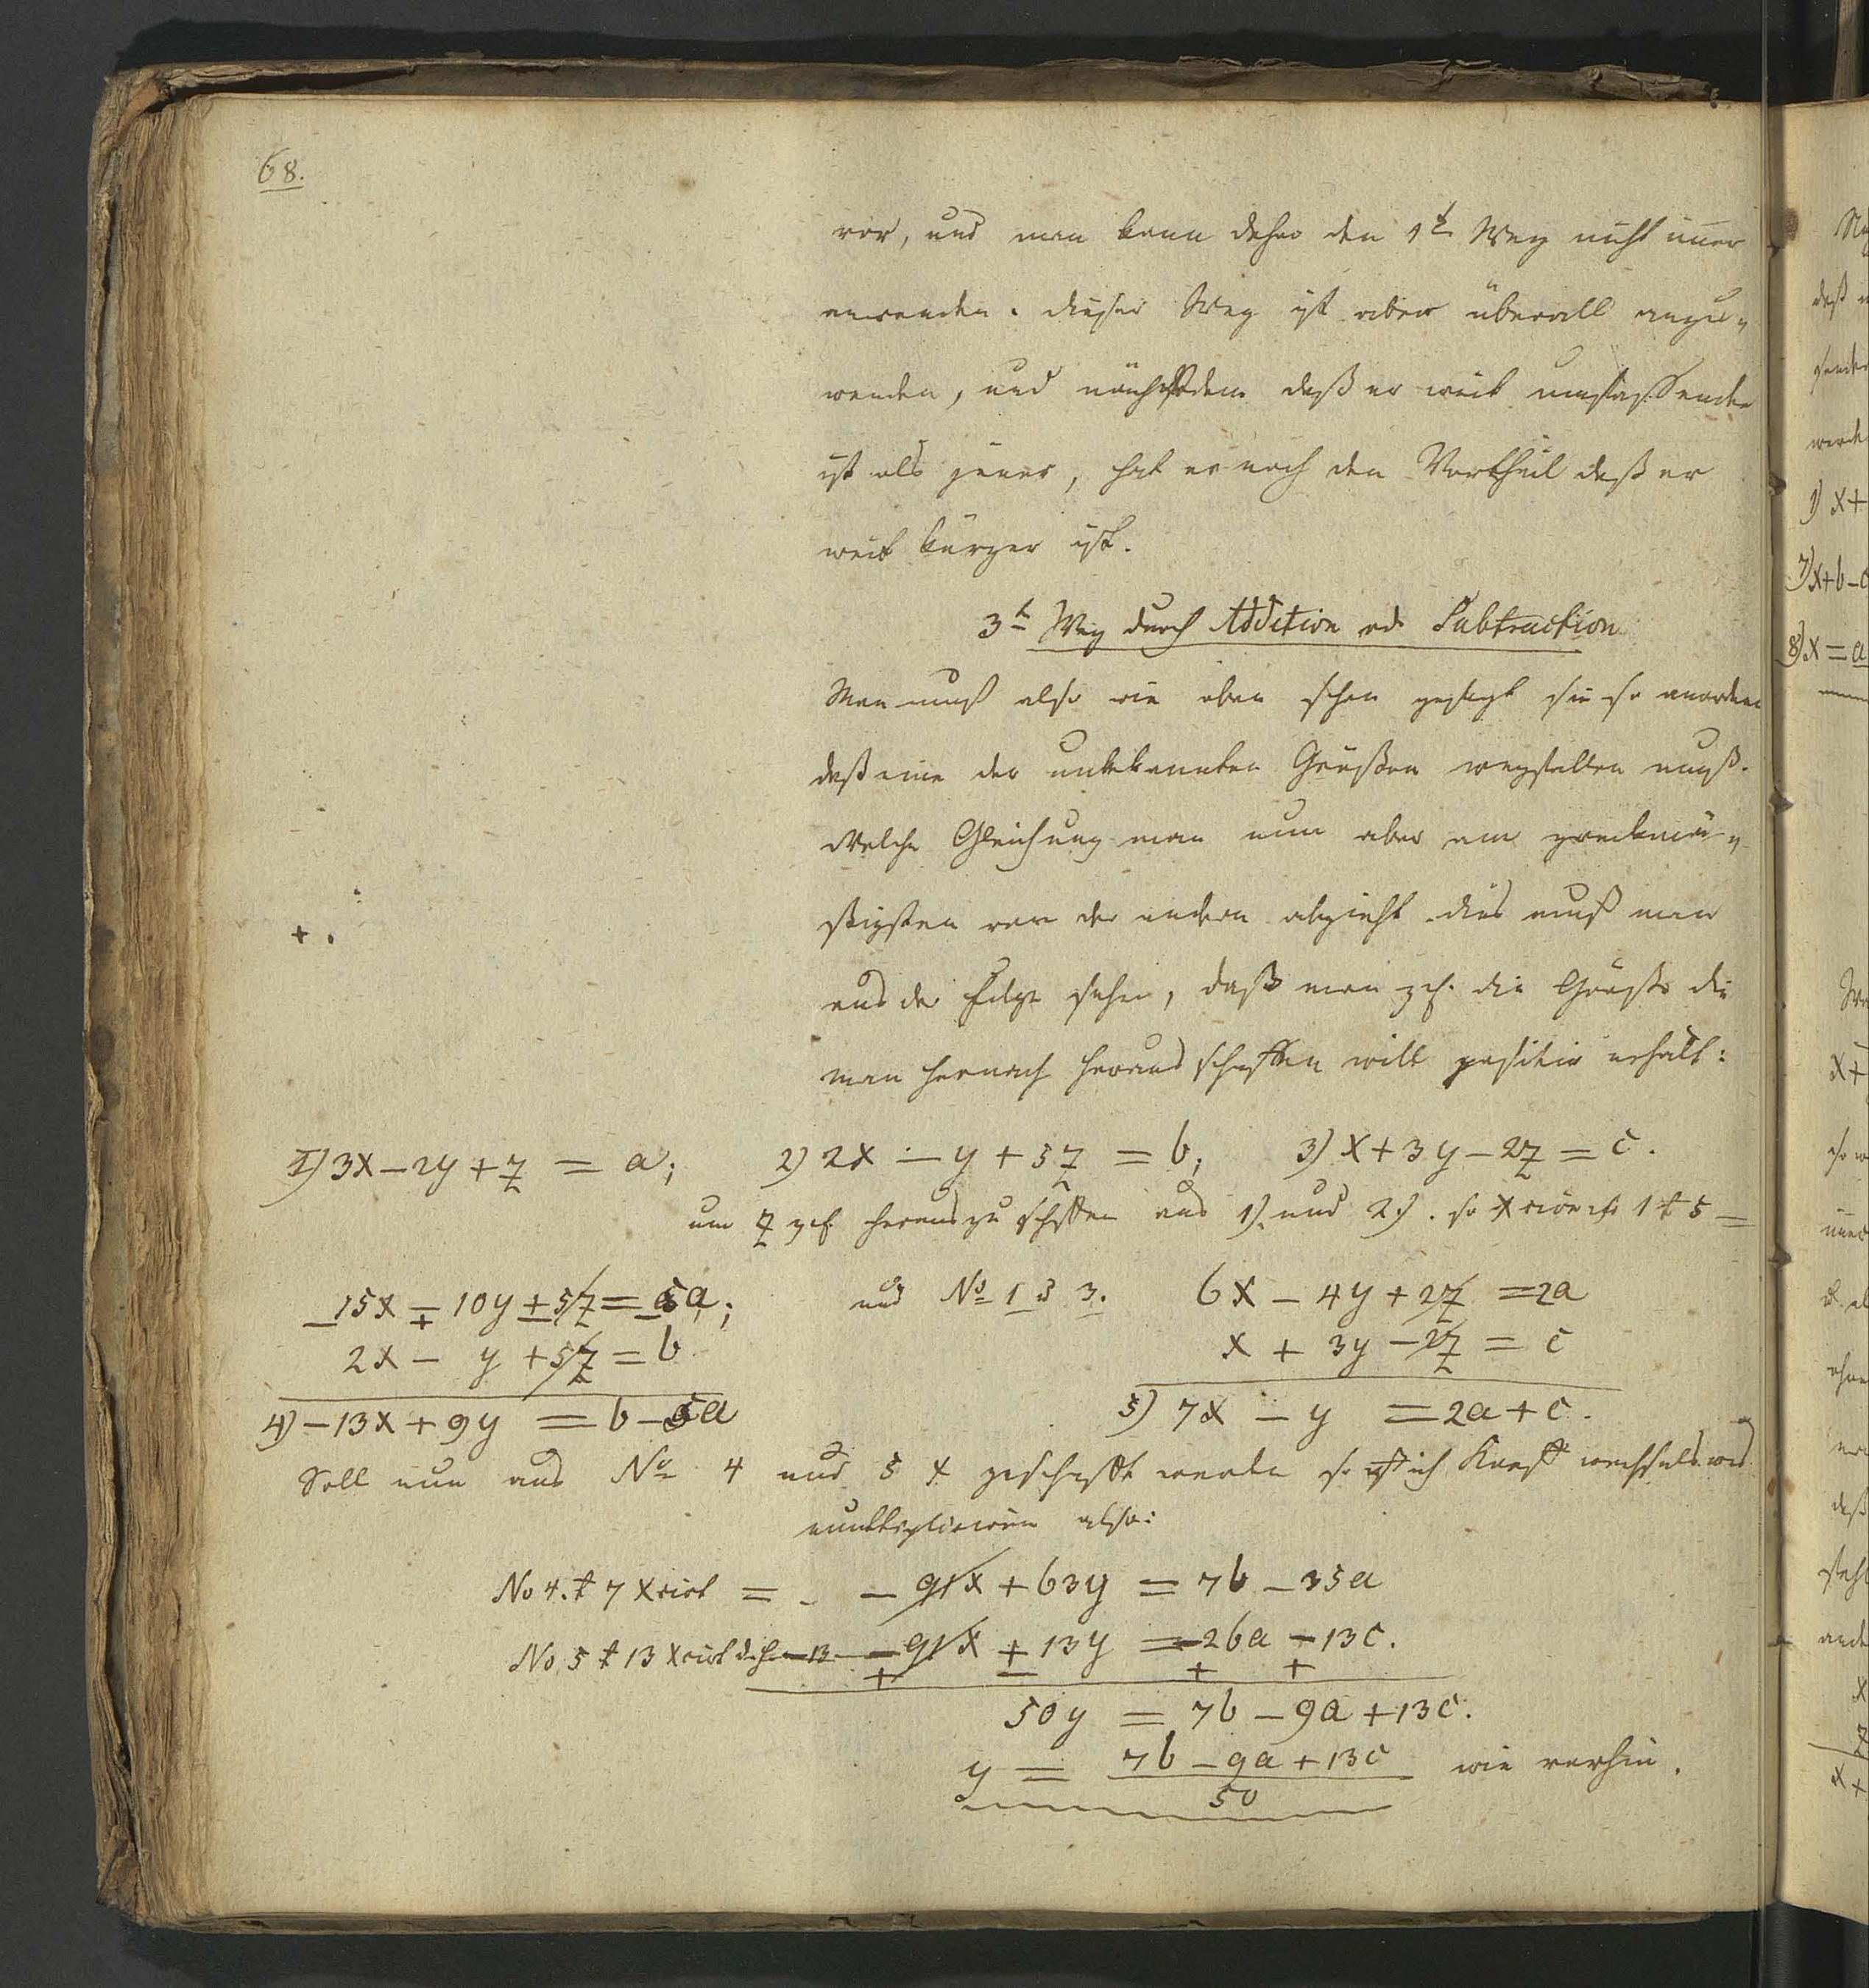 68.
vor, und man kann daher den 1t Weg nicht im̅er
anwenden. dieser Weg ist aber überall anzu-
wenden, und nächstdem daß er weit umfassender
ist als jener, hat er noch den Vortheil daß er
weit kürzer ist.
3t Weg durch Addition od. Subtraction
Man muß also wie oben schon gesagt sie so anordnen
daß eine der unbekannten Größen wegfallen muß.
Welche Gleichung man nun aber am zweckmä-
ßigsten von der andern abzieht dies muß man
aus der Folge sehen, daß man die Größe die
man hernach herausschaffen will positiv erhält:
1) 3x - 2y + z = a; 2) 2x - y + 5z = b; 3) x + 3y - 2z = c.
um z herauszuschaffen aus 1). und 2). so 1 t 5 =
15x - 10y + 5z = 5a; und No 1 & 3. 6x - 4y + 2z = 2a
2x - y + 5z = b x + 3y - 2z = c
4) - 13x + 9y = b - 5a 5) 7x - y = 2a + c.
Soll nun aus No 4 und 5 x geschafft werden so ich
multipliciren also:
No 4. t 7 X cirt = - 91x + 63y = 7b - 35a
No 5 t 13 X cirt d. h. - 13 - 91x + 13y = - 26a - 13c.
50y = 7b - 9a + 13c.
y = 7b - 9a + 13c wie vorhin.
50